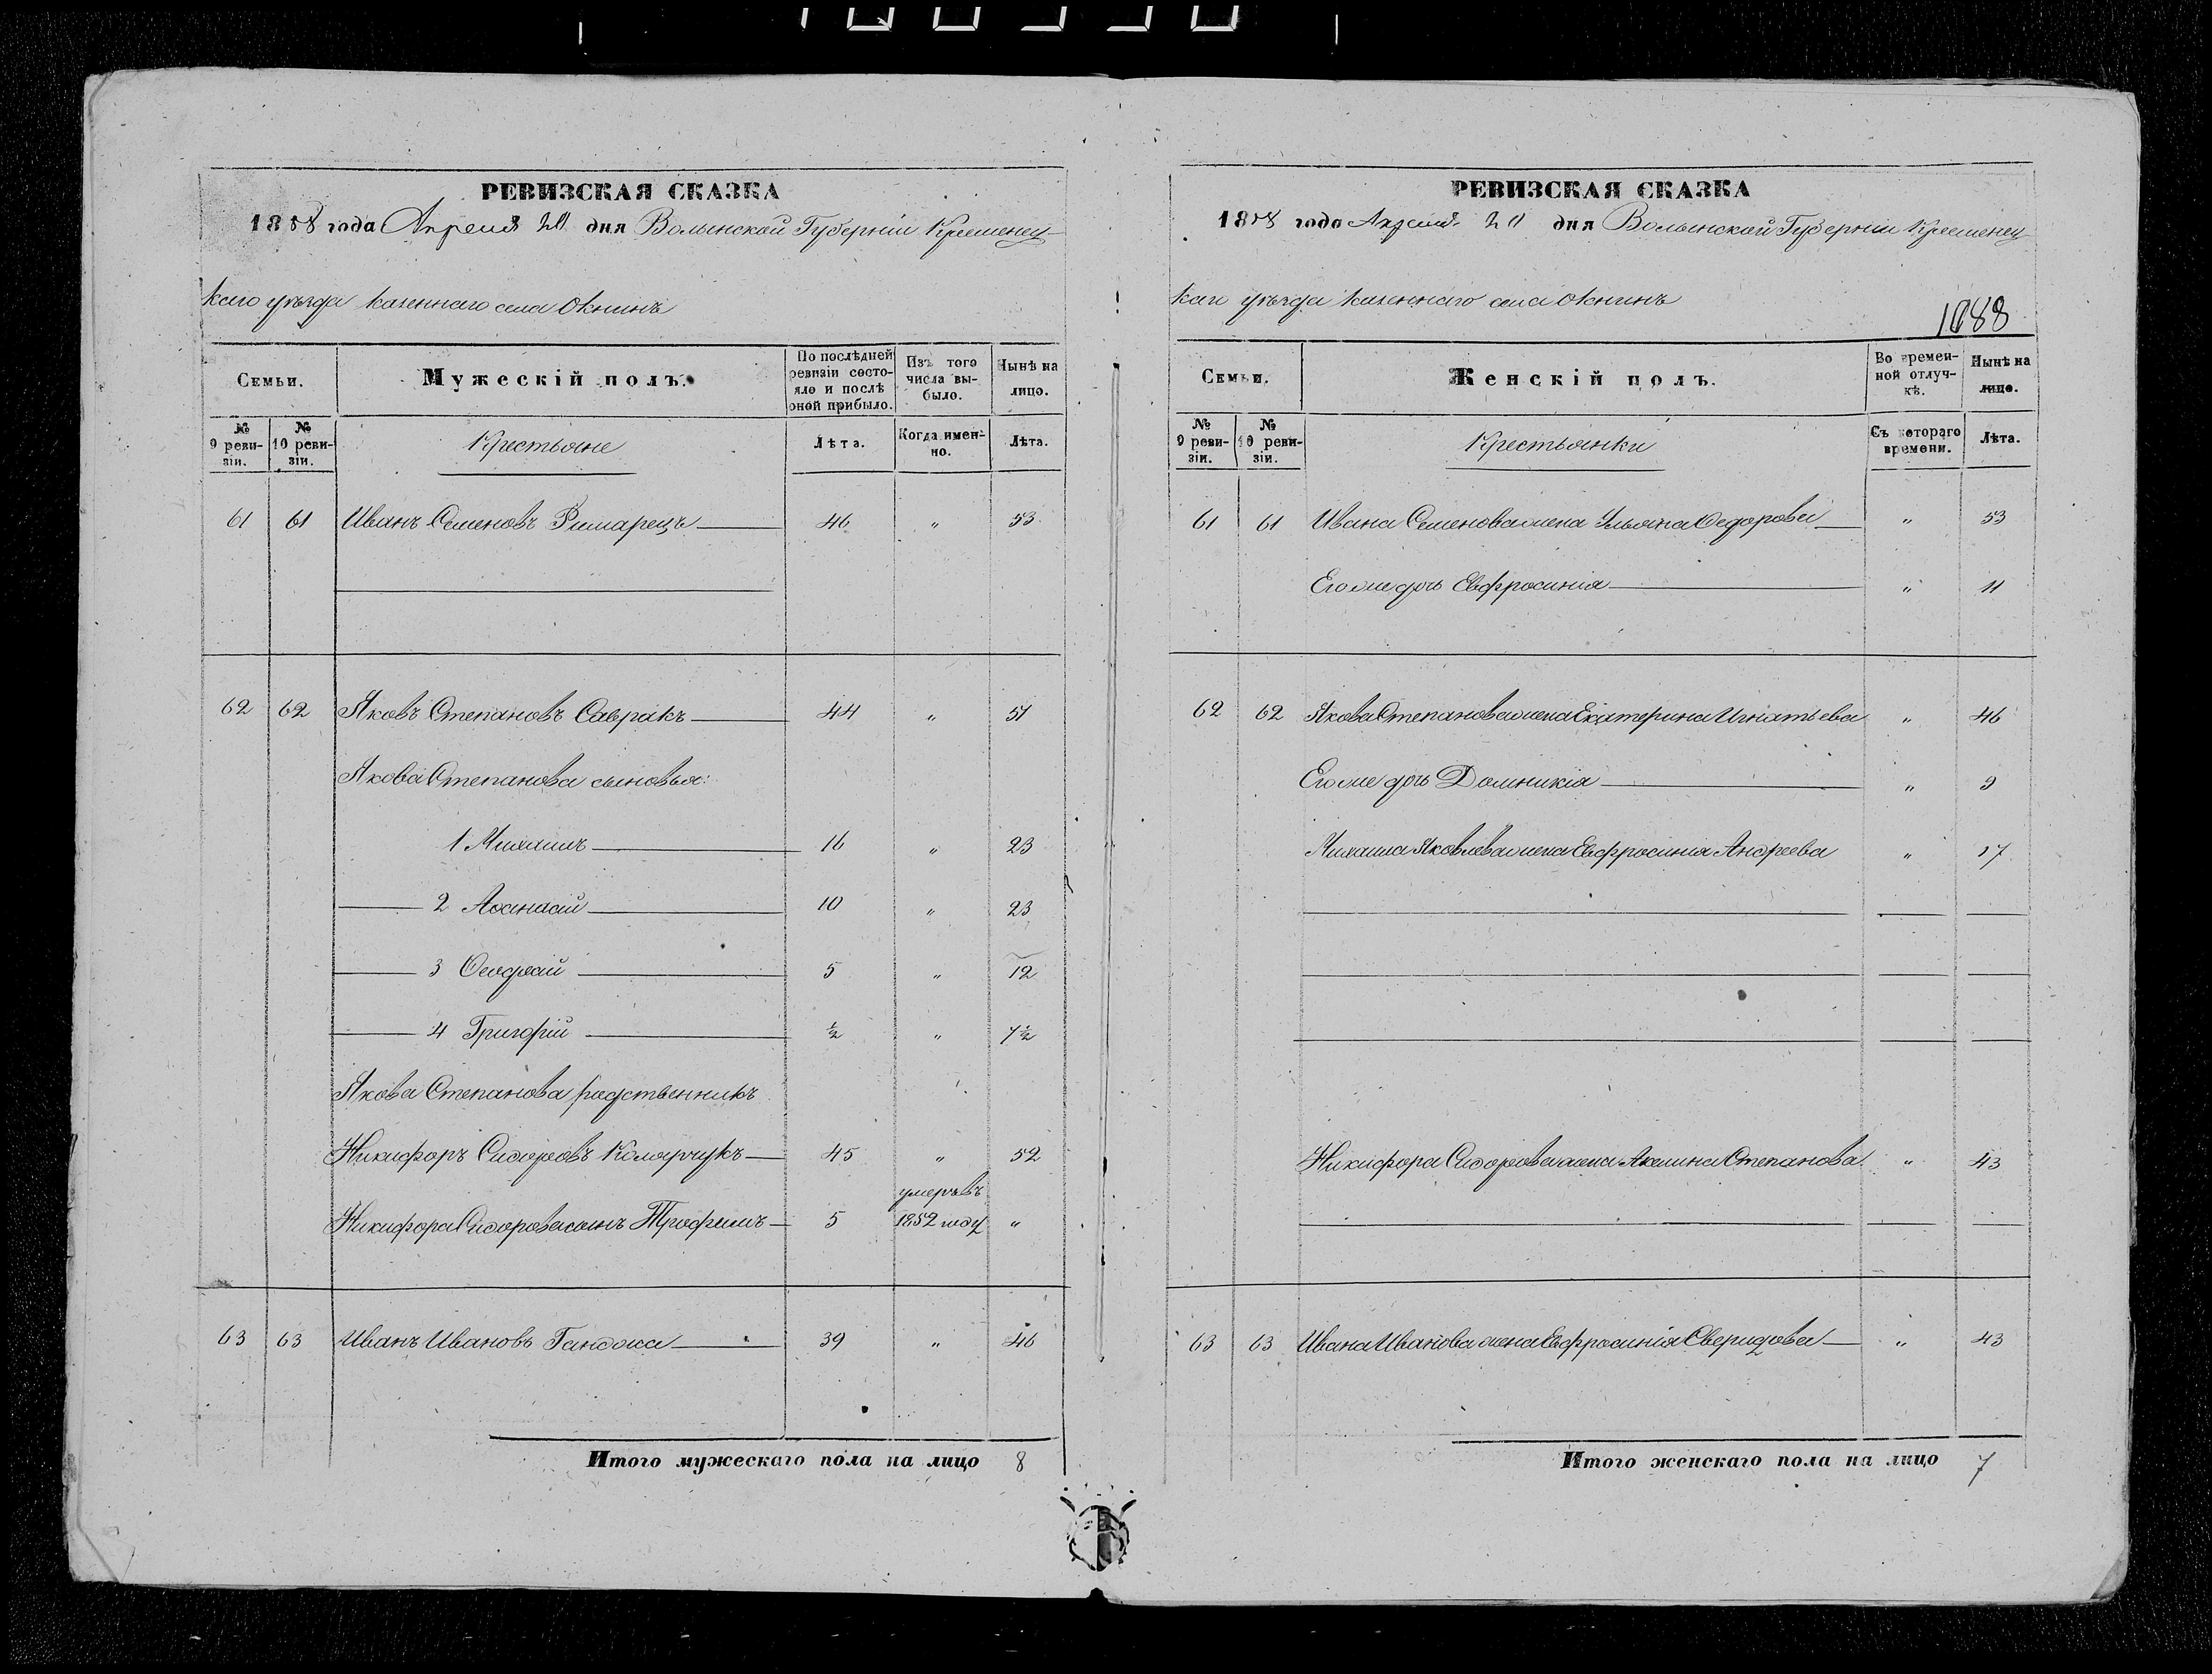 РЕВИЗСКАЯ СКАЗКА
1858 года Апреля 20 дня Волынской Губерніи Кременец
каго уѣзда казеннаго села Окнинъ
Семьи.
Мужескій полъ.
По послѣдней ревизіи состояло и послѣ оной прибыло.
Изъ того числа выбыло.
Нынѣ на лицо.
№ 9 ревизіи.
№ 10 ревизіи.
Крестьяне
Лѣта.
Когда именно.
Лѣта.
61 61 Иванъ Семеновъ Римарецъ 46 " 53
62 62 Яковъ Степановъ Савракъ 44 " 51
Якова Степанова сыновья:
1 Михаилъ 16 " 23
2 Аѳанасій 10 " 23
3 5 " 12
4 Григорій ½ " 7½
Якова Степанова родственникъ
Никифоръ Сидоровъ 45 " 52
умеръ въ
Никифора Сидорова сынъ Трофимъ 5 1852 году "
63 63 Иванъ Ивановъ Ганджа 39 " 46
Итого мужескаго пола на лицо 8
РЕВИЗСКАЯ СКАЗКА
1858 года Апреля 20 дня Волынской Губерніи Кременец
каго уѣзда казеннаго села Окнинъ
1088
Семьи.
Женскій полъ.
Во временной отлучкѣ.
Нынѣ на лицо.
№ 9 ревизіи.
№ 10 ревизіи.
Крестьянки
Съ котораго времени.
Лѣта.
61 61 Ивана Семенова жена Ульяна Федорова " 53
Его же дочь Евфросинія " 11
62 62 Якова Степанова жена Екатерина Игнатьева " 46
Его же дочь Домникія " 9
Михаила Яковлева жена Евфросинія Андреева " 17
Никифора Сидорова жена Акилина Степанова " 43
63 63 Ивана Иванова жена Евфросинія Свиридова " 43
Итого женскаго пола на лицо 7